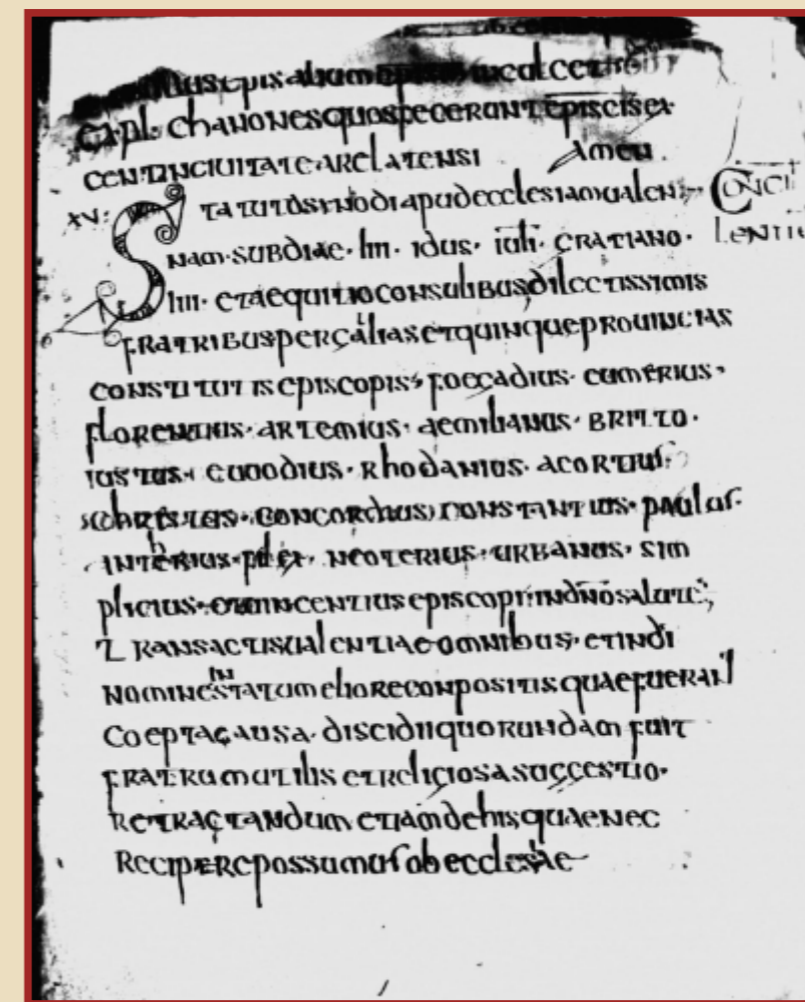 EXPL CHANONES QUOS FECERUNT EPISCISEX
CENTI IN CIUITATE ARELATENSI AMEN
XV: STATUTA SINODI APUD ECCLESIAM UALENTI CONCI
NAM. SUBDIAE. IIII. IDUS. IULI. GRATIANO. LENTI
IIII. ET AEQUITIO CONSULIBUS, DILECTISSIMIS
FRATRIBUS PER GALLIAS ET QUINQUE PROUINCIAS
CONSTITUTIS EPISCOPIS, FOEGADIUS. EUMERIUS.
FLORENTIUS. ARTEMIUS. AEMILIANUS. BRITTO.
IUSTUS. EUUODIUS. RHODANIUS. ACORTIUS.
CONCORDIUS. CONSTANTIUS. PAULUS.
NEOTERIUS. URBANUS. SIM
PLICIUS. UINCENTIUS EPISCOPI IN DNO SALUTE;
TRANSACTIS UALENTIAE OMNIBUS. ET IN DI
NOMINE IN STATUM ELIORE CONPOSITIS QUAE FUERANT
COEPTA CAUSA. DISCIDII QUORUNDAM FUIT
FRATRUM UTILIS ET RELIGIOSA SUGGESTIO.
RETRACTANDUM ETIAM DE HIS QUAE NEC
RECIPERE POSSUMUS OB ECCLESIAE